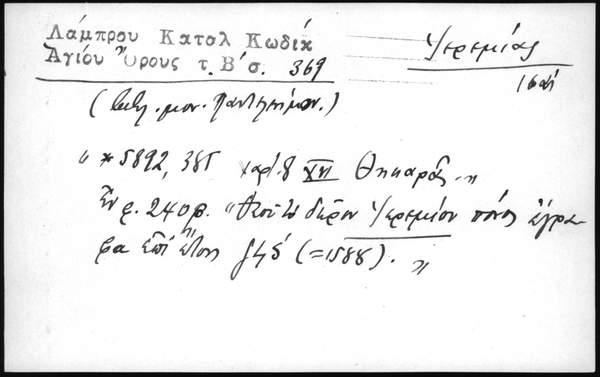 Λάμπρου Κατολ Κωδίκ
Ἁγίου Ὄρους τ. Β' σ. 369
Ἱερεμίας
16 αἰ
( μον. Παντελεήμον. )
" * 5892, 385 χαρ. 8 XVI Θηκαρᾶς "
Ἐν φ. 240β. "Θεοῦ τὸ δῶρον Ἱερεμίου πόνος ἔγρα-
ψα ἐπὶ ἔτους (=1588). "